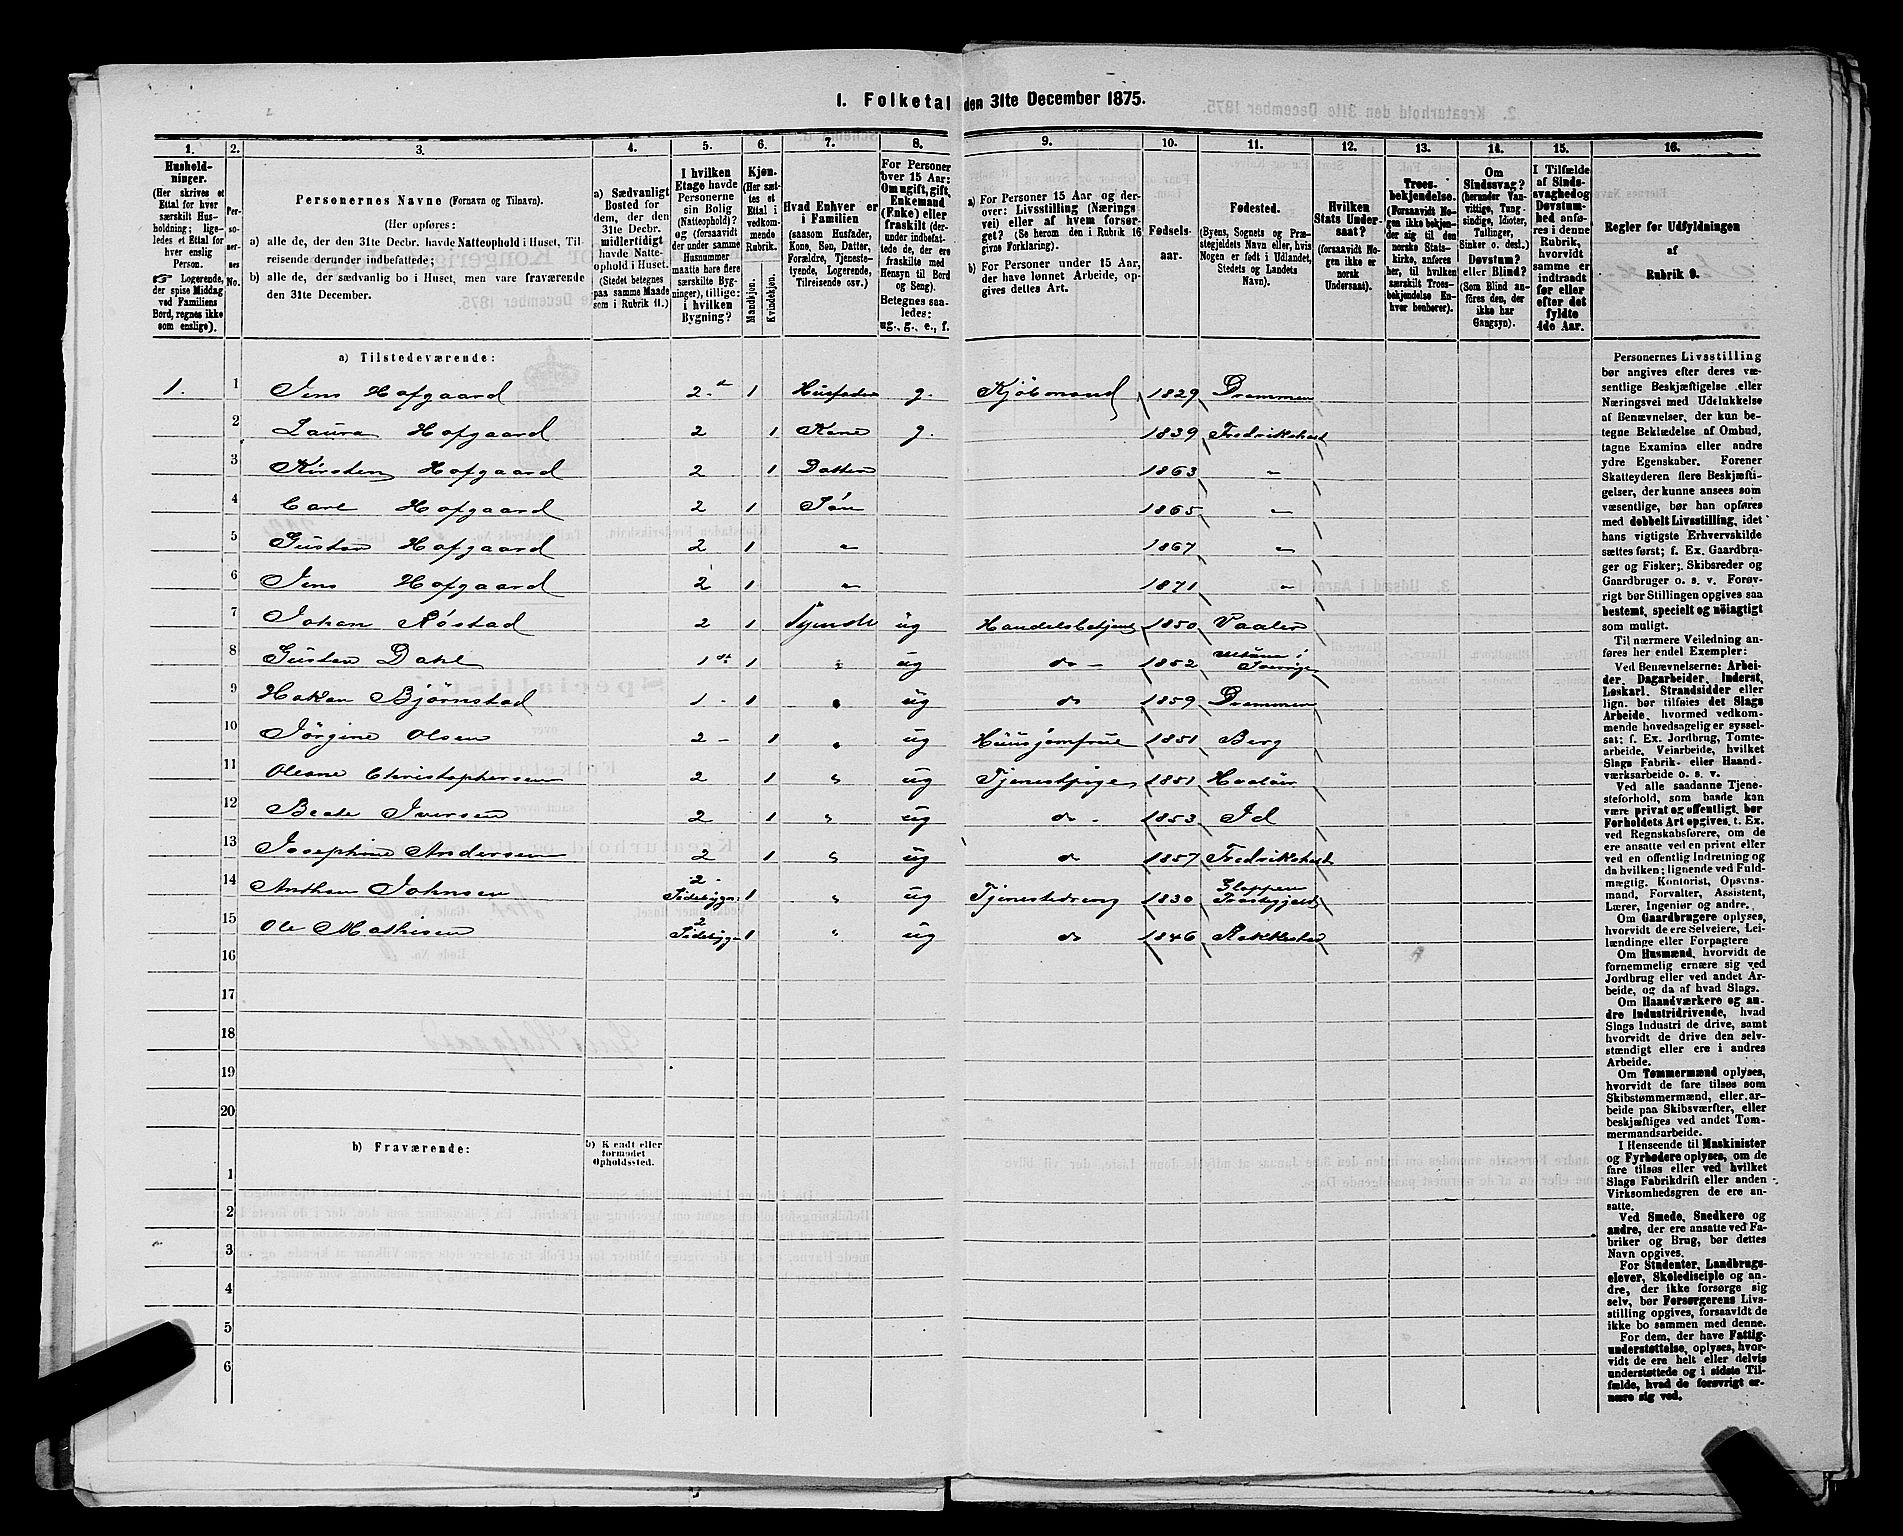 1. Folketal den 31te December 1875.
1. 2. 3. 4. 5. 6. 7. 8. 9. 10. 11. 12. 13. 14. 15. 16.
Husholdninger. (Her skrives et Ettal for hver særskilt Husholdning; ligeledes et Ettal for hver enslig Person. Logerende, der spise Middag ved Familiens Bord, regnes ikke som enslige).
Personernes No.
Personernes Navne (Fornavn og Tilnavn).
(Her opføres:
a) alle de, der den 31te Decbr. havde Natteophold i Huset, Tilreisende derunder indbefattede;
b) alle de, der sædvanlig bo i Huset, men vare fraværende den 31te December.
a) Sædvanligt Bosted for dem, der den 31te Decbr. midlertidigt havde Natteophold i Huset. (Stedet betegnes paa samme Maade som i Rubrik 11.)
I hvilken Etage havde Personerne sin Bolig (Natteophold)? og (forsaavidt der under samme Husnummer maatte høre flere særskilte Bygninger), tillige: i hvilken Bygning?
Kjøn. (Her sættes et Ettal i vedkommende Rubrik. Mandkjøn. Kvindekjøn.
Hvad Enhver er i Familien (saasom Husfader, Kone, Søn, Datter, Forældre, Tjenestetyende, Logerende, Tilreisende osv.)
For Personer over 15 Aar: Om ugift, gift, Enkemand (Enke) eller fraskilt (derunder indbefattede de, der ere fraskilte med Hensyn til Bord og Seng). Betegnes saaledes: ug., g., e., f.
a) For Personer 15 Aar og derover: Livsstilling (Næringsvei) eller af hvem forsørget? (Se herom den i Rubrik 16 givne Forklaring).
b) For Personer under 15 Aar, der have lønnet Arbeide, opgives dettes Art.
Fødselsaar.
Fødested. (Byens, Sognets og Præstegjeldets Navn eller, hvis Nogen er født i Udlandet, Stedets og Landets Navn).
Hvilken Stats Undersaat? (forsaavidt Nogen ikke er norsk Undersaat).
Troesbekjendelse. (Forsaavidt Nogen ikke bekjender sig til den norske Statskirke, anføres her, til hvilken særskilt Troesbekjendelse Enhver henhører).
Om Sindssvag? (herunder Vanvittige, Tungsindige, Idioter, Tullinger, Sinker o. desl.) Døvstum? eller Blind? (Som Blind anføres den, der ikke har Gangsyn).
I Tilfælde af Sindssvaghed og Døvstumhed anføres i denne Rubrik, hvorvidt samme er indtraadt før eller efter det fyldte 4de Aar.
Regler for Udfyldningen af Rubrik 9.
a) Tilstedeværende:
1. 1 Jens Hofgaard 2.d 1 Husfader g. Kjøbmand 1829 Drammen
2 Laura Hofgaard 2 1 Kone g. 1839 Fredrikshald
3 Kirsten Hofgaard 2 1 Datter 1863 "
4 Carl Hofgaard 2 1 Søn 1865 "
5 Gustav Hofgaard 2 1 " 1867 "
6 Jens Hofgaard 2 1 " 1871 "
7 Johan Røstad 2 1 Tyende ug Handelsbetjent 1850 Vaaler
8 Gustav Dahl 1st 1 " ug do - 1852 i Sverige
9 Hakon Bjørnstad 1 - 1 " ug do 1859 Drammen
10 Jørgine Olsen 2 - 1 " ug Huusjomfrue 1851 Berg
11 Oleane Christophersen 2 1 " ug Tjenestpige 1851 Hvaløer
12 Beate Iversen 2 1 " ug do - 1853 Id
13 Josephine Andersen 2 1 " ug do 1857 Fredrikshald
14 Anthon Johnsen 2 - Sidebygn. 1 " ug Tjenestedreng 1830 Præstegjeld
15 Ole Mathisen 2 Sidebygn 1 " ug do 1846 Rakkestad
16
17
18
19
20
b) Fraværende:
b) Kjendt eller formodet Opholdssted.
1
2
3
4
5
6
Personernes Livsstilling bør angives efter deres væsentlige Beskjæftigelse eller Næringsvei med Udelukkelse af Benævnelser, der kun betegne Beklædelse af Ombud, tagne Examina eller andre ydre Egenskaber. Forener Skatteyderen flere Beskjæftigelser, der kunne ansees som væsentlige, bør han opføres med dobbelt Livsstilling, idet hans vigtigste Erhvervskilde sættes først; f. Ex. Gaardbruger og Fisker; Skibsreder og Gaardbruger o. s. v. Forøvrigt bør Stillingen opgives saa bestemt, specielt og nöiagtigt som muligt.
Til nærmere Veiledning anføres her endel Exempler:
Ved Benævnelserne: Arbeider, Dagarbeider, Inderst, Løskarl, Strandsidder eller lign. bør tilføies det Slags Arbeide, hvormed vedkommende hovedsagelig er sysselsat; f. Ex. Jordbrug, Tomtearbeide, Veiarbeide, hvilket Slags Fabrik- eller Haandværksarbeide o. s. v.
Ved alle saadanne Tjenesteforhold, som baade kan være privat og offentligt, bør Forholdets Art opgives, t. Ex. ved Regnskabsførere, om de ere ansatte ved en privat eller ved en offentlig Indretning og da hvilken; lignende ved Fuldmægtig, Kontorist, Opsynsmand, Forvalter, Assistent, Lærer, Ingeniør og andre.
Om Gaardbrugere oplyses, hvorvidt de ere Selveiere, Leilændinge eller Forpagtere
Om Husmænd, hvorvidt de fornemmelig ernære sig ved Jordbrug eller ved andet Arbeide, og da af hvad Slags.
Om Haandværkere og andre Industridrivende, hvad Slags Industri de drive, samt hvorvidt de drive den selvstændigt eller ere i andres Arbeide.
Om Tømmermænd oplyses, hvorvidt de fare tilsøs som Skibstømmermænd, eller arbeide paa Skibsværfter, eller beskjæftiges ved andet Tømmermandsarbeide.
I Henseende til Maskinister og Fyrbødere oplyses, om de fare tilsøs eller ved hvilket Slags Fabrikdrift eller anden Virksomhedsgren de ere ansatte.
Ved Smede, Snedkere og andre, der ere ansatte ved Fabriker og Brug, bør dettes Navn opgives.
For Studenter, Landbrugselever, Skoledisciple og andre, der ikke forsørge sig selv, bør Forsørgerens Livsstilling opgives, forsaavidt de ikke bo sammen med denne.
For dem, der have Fattigunderstøttelse, oplyses, hvorvidt de ere helt eller delvis understøttede og i sidste Tilfælde, hvad de forøvrigt ernære sig ved.